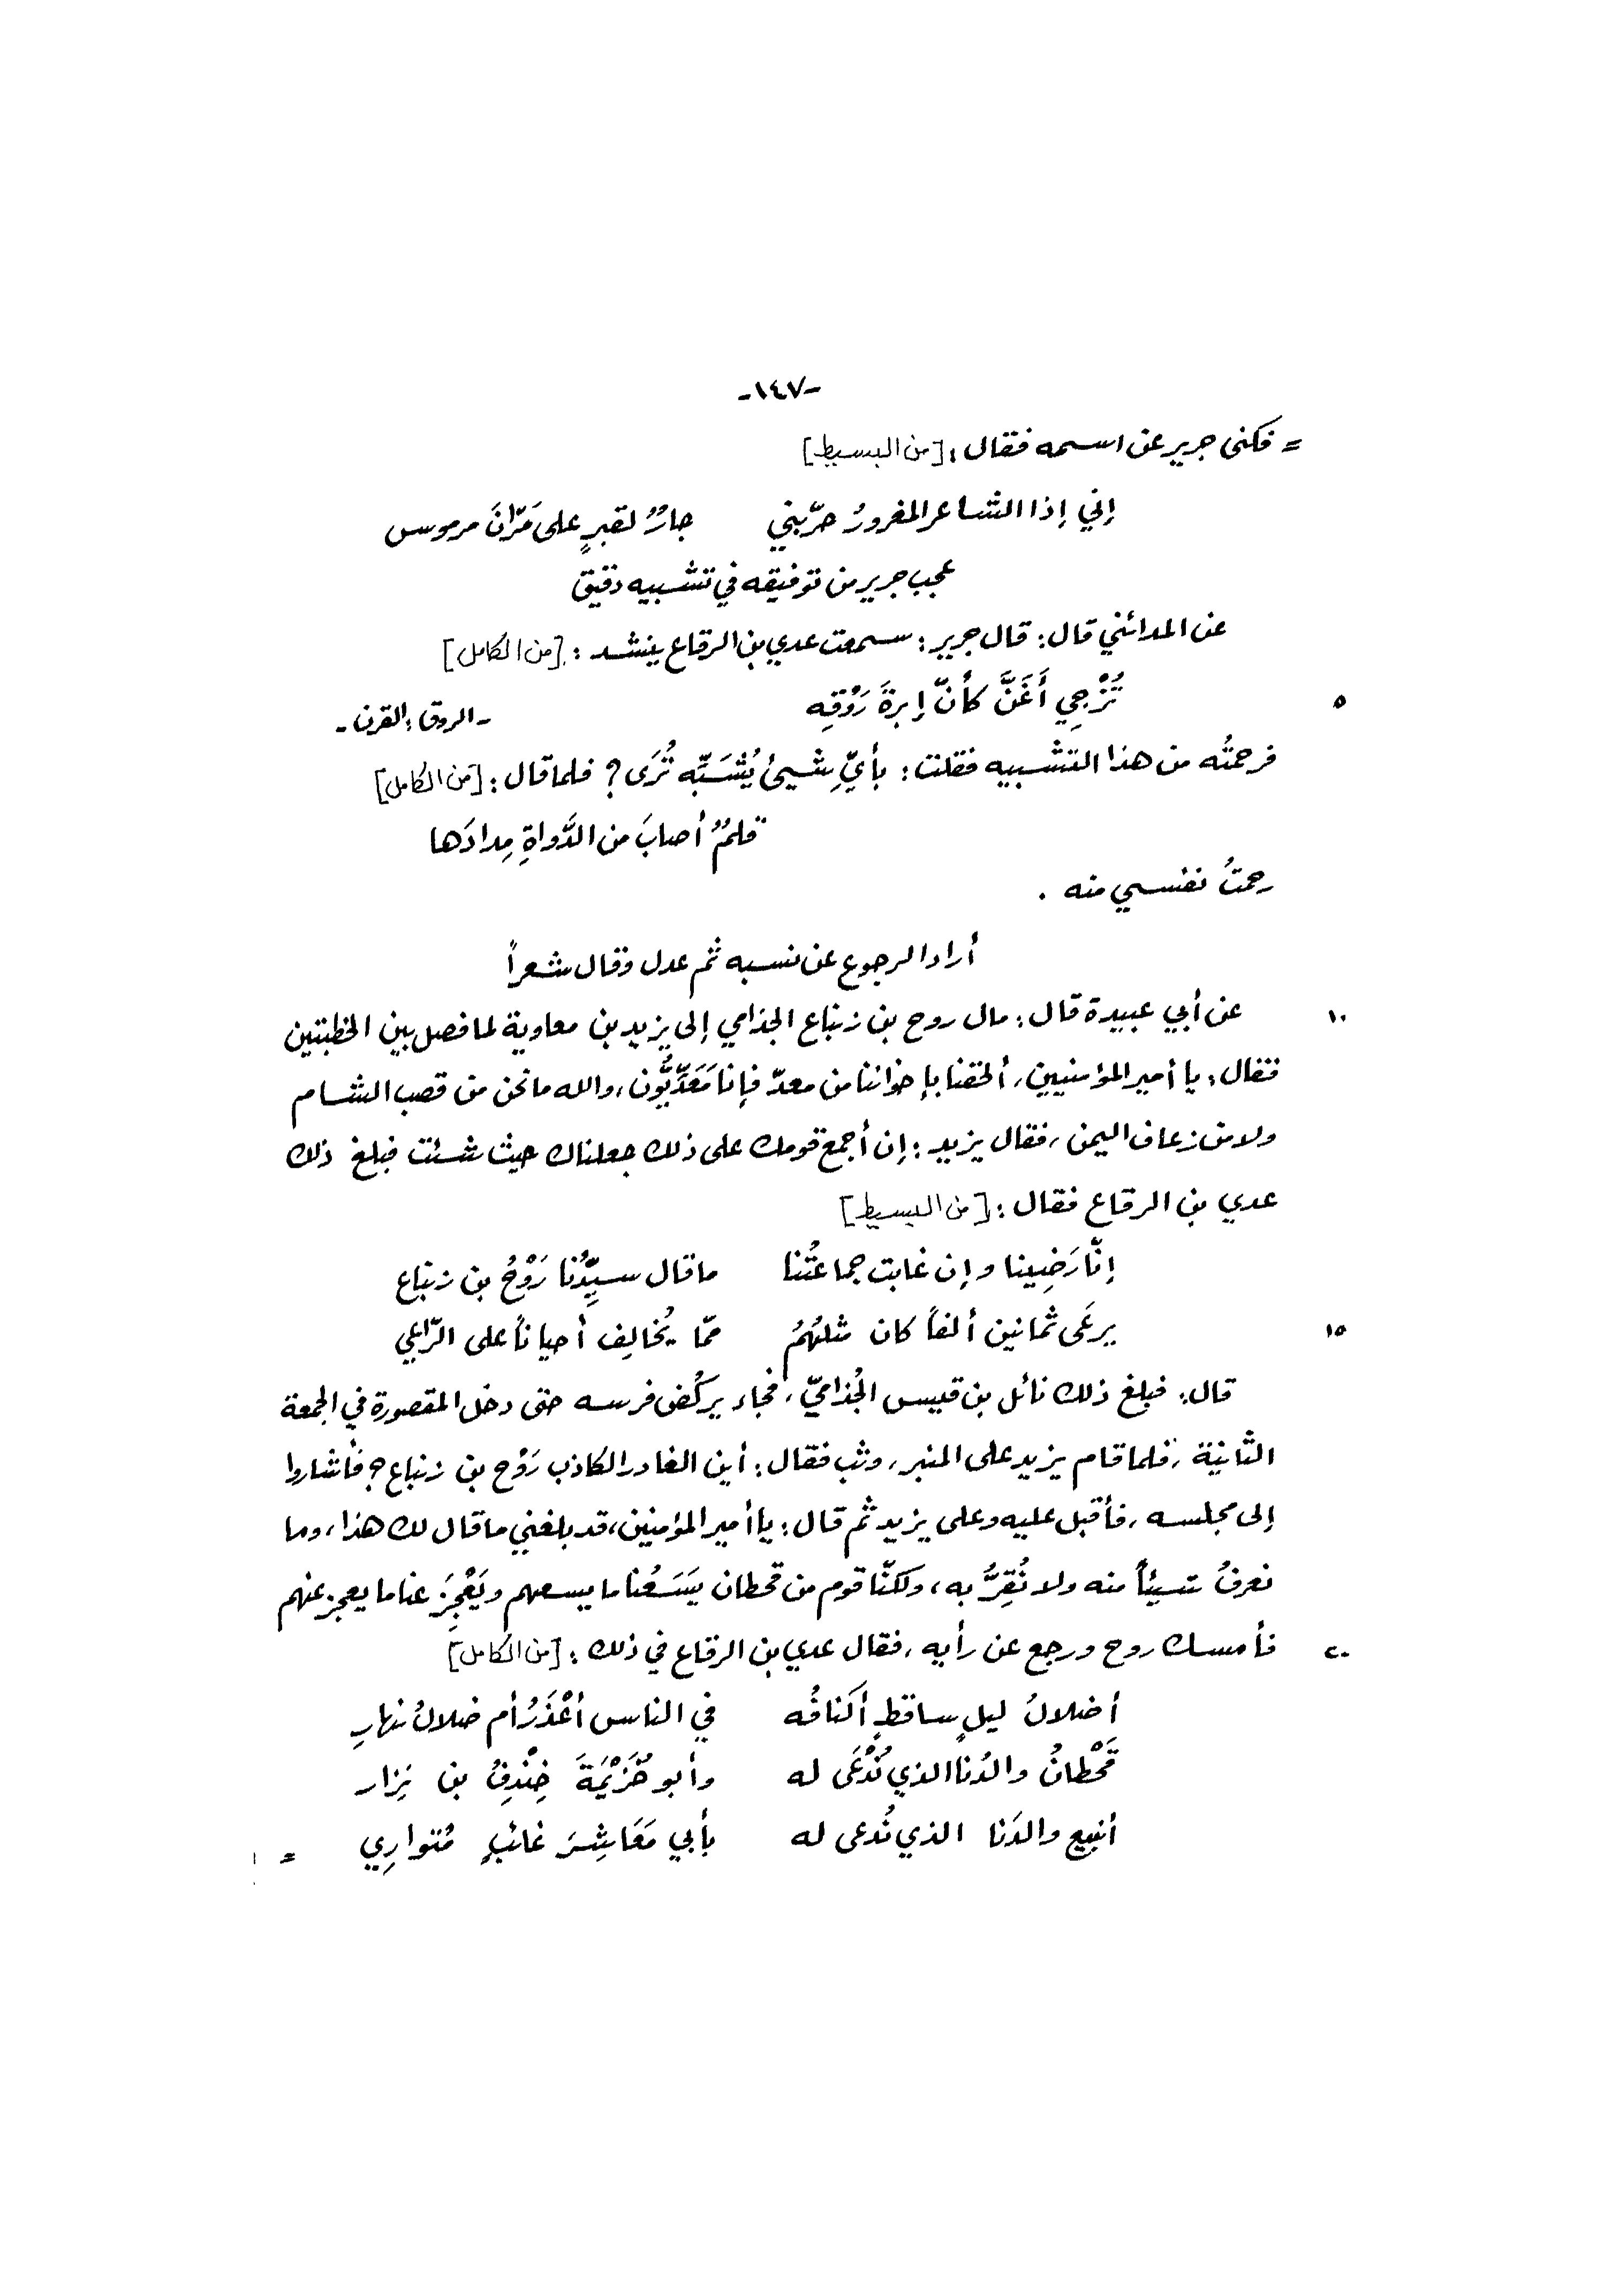 -١٤٧-
= فكنى جرير عن اسمه فقال: [من البسيط]
إنّي إذا الشاعر المغرورُ حرّبني    جارٌ لقبرٍ على مَرّانَ مرموس
عجب جرير من توفيقه في تشبيه دقيق
عن المدائني قال: قال جرير: سمعت عدي بن الرقاع ينشد: [من الكامل]
٥ تُزْجِي أَغَنَّ كأنّ إبرةَ رَوْقِه    -الروق: القرن-
فرحمتُه من هذا التشبيه فقلت: بأيِّ شيئ يُشَبِّه تُرَى؟ فلما قال: [من الكامل]
قلمٌ أصابَ من الدَّواةِ مِدادَها
رحمتُ نفسي منه .
أراد الرجوع عن نسبه ثم عدل وقال شعراً
١٠ عن أبي عبيدة قال: مال روح بن زنباع الجذامي إلى يزيد بن معاوية لما فصل بين الخطبتين
فقال: يا أمير المؤمنين، ألحقنا بإخواننا من معدّ فإنا مَعَدِّيُّون، والله ما نحن من قصب الشام
ولا من زعاف اليمن، فقال يزيد: إن أجمع قومك على ذلك جعلناك حيث شئت فبلغ ذلك
عدي بن الرقاع فقال: [من البسيط]
إنّا رَضِينا وإن غابت جماعتُنا    ما قال سيِّدُنا رَوْحُ بن زنباع
١٥ يرعَى ثمانين ألفاً كان مثلهُمُ    ممّا يُخالِف أحياناً على الرّاعي
قال: فبلغ ذلك نائل بن قيس الجُذاميّ، فجاء يركُض فرسه حتى دخل المقصورة في الجمعة
الثانية، فلما قام يزيد على المنبر، وثب فقال: أين الغادر الكاذب رَوْح بن زنباع؟ فأشاروا
إلى مجلسه، فأقبل عليه وعلى يزيد ثم قال: يا أمير المؤمنين، قد بلغني ما قال لك هذا، وما
نعرفُ شيئاً منه ولا نُقِرُّ به، ولكنّا قوم من قحطان يَسَعُنا ما يسعهم ويَعْجِزَ عنا ما يعجز عنهم
٢٠ فأمسك روح ورجع عن رأيه، فقال عدي بن الرقاع في ذلك: [من الكامل]
أضلالُ ليلٍ ساقطٍ أكنافُه    في الناس أعْذَرُ أم ضلالُ نهارِ
قَحْطانُ والدُنا الذي نُدْعَى له    وأبو خُزَيْمَةَ خِنْدِفُ بن نِزار
أنبيع والدَنا الذي نُدعى له    بأبي مَعَاشِرَ غائبٍ مُتوارِي =